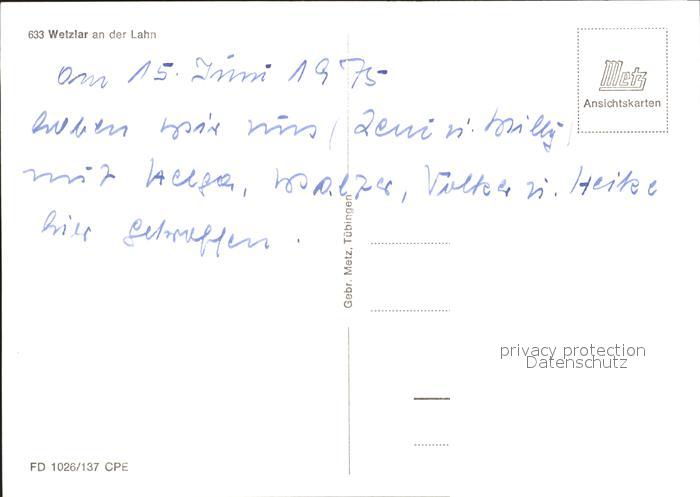 633 Wetzlar an der Lahn
Metz
Ansichtskarten
am 15. Juni 1975
haben wir uns ( Leni u. Willy )
mit Helga, Walter, Volker u. Heike
hier getroffen .
Gebr. Metz, Tübingen
privacy protection
Datenschutz
FD 1026/137 CPE